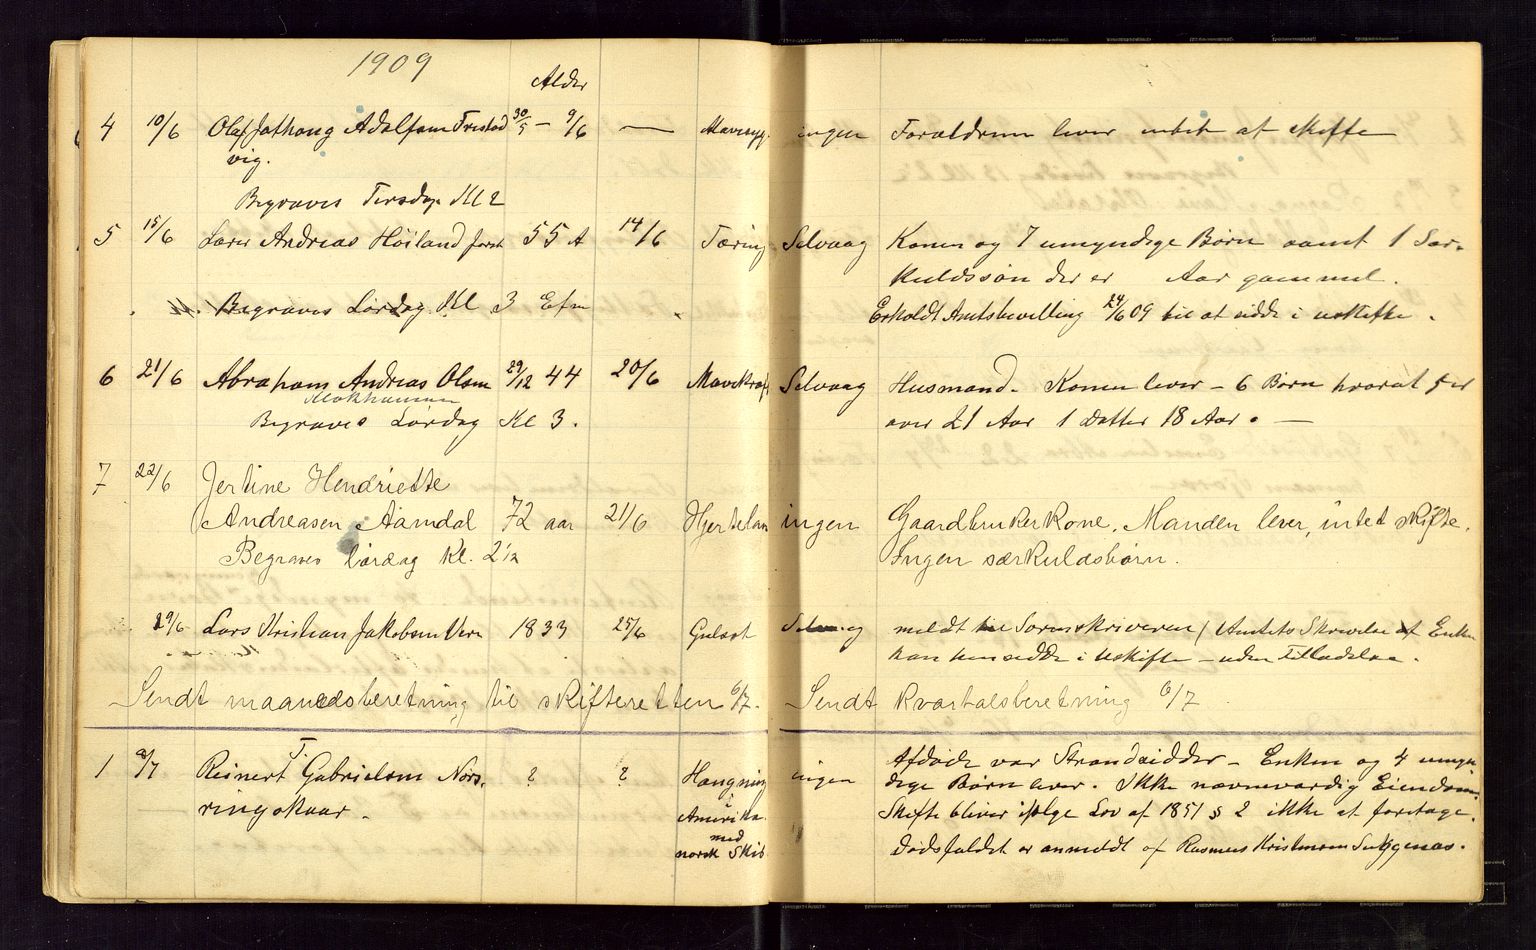 1909
Alder
4 10/6 Olaf Jathong Adolfsen Trestad 30/5 — 9/6 — Mavesyg. ingen Forældrene lever intet at skifte
vig.
Begraves Tirsdag Kl 2
5 15/6 Andreas Höiland 55 A 14/6 Tæring Selvaag Konen og 7 umyndige Børn samt 1 Sær-
kuldssøn der er Aar gammel.
Begraves Lördag Kl 3 Efm Erholdt Amtsbevilling 24/6 09 til at sidde i uskifte.
6 21/6 Abraham Andreas Olsen 29/12 44 20/6 Mavekræft Selvaag Husmand. Konen lever – 6 Børn hvoraf 5 er
Begraves Lørdag Kl 3. over 21 Aar 1 Datter 18 Aar. —
7 22/6 Jertine Hendriette
Andreasen Aamdal 72 aar 21/6 Hjertelam ingen Gaardbrukerkone. Manden lever, intet skifte.
Begraves lørdag Kl. 2 1/2 Ingen særkuldsbørn.
29/6 Lars Kristian Jakobsen 1833 25/6 Gulsot meldt til Sorenskriveren / Amtets Skrivelse at Enken
kan hensidde i Uskifte – uden Tilladelse.
Sendt maanedsberetning til skifteretten 6/7. Sendt kvartalsberetning 6/7
1 8/7 Reinert T. Gabrielsen Nors- ? ? Hængning ingen Afdøde var Strandsidder – Enken og 4 umyn-
ringokaar. i dige Børn lever. Ikke nævneværdig Eiendom.
Amerika Skifte bliver ifølge Lov af 1851 § 2 ikke at foretage.
med
norsk Skib Dødsfaldet er anmeldt af Rasmus Kristensen